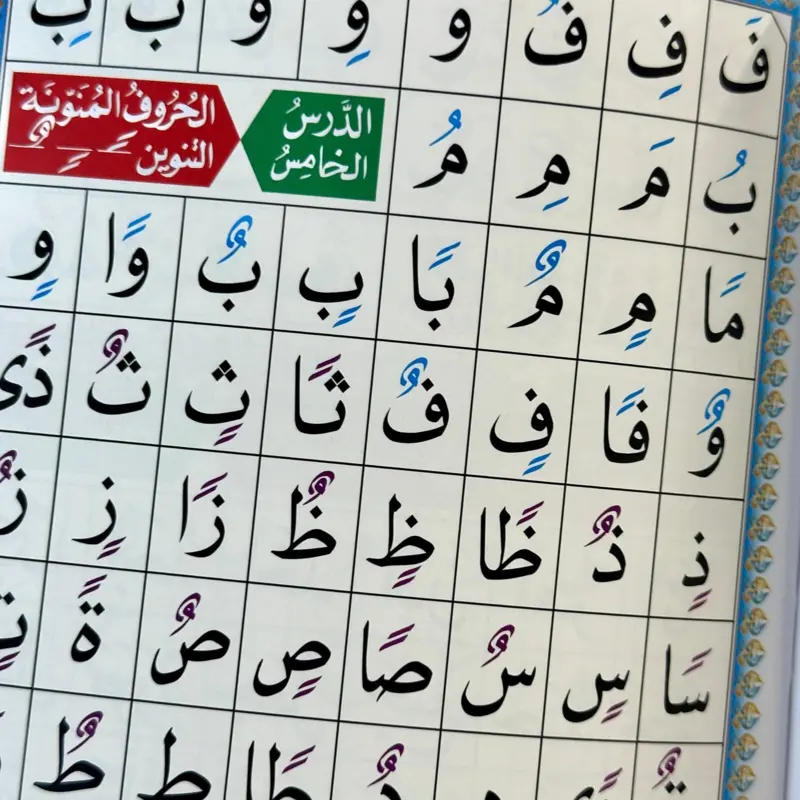 فَ فِ فُ و وِ و ب بِ
بُ مَ مِ مُ
الدَّرسُ
الخامِسُ
الحُرُوفُ المُنَوَّنَة
التنوين ـًـ ـٍـ ـٌـ
مًا مٍ مٌ بًا بٍ بٌ وًا وٍ
وٌ فًا فٍ فٌ ثًا ثٍ ثٌ ذًى
ذٍ ذٌ ظًا ظٍ ظٌ زًا زٍ زٌ
سًا سٍ سٌ صًا صٍ صٌ ةً تٍ
دٌ طًا ط طٌ